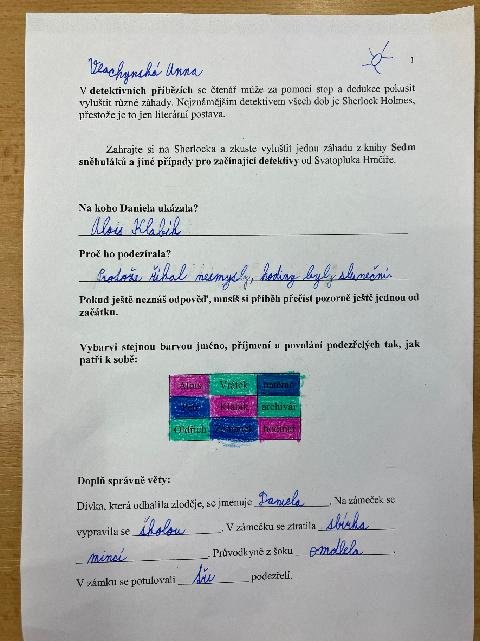 Vlachynská Anna
1
V detektivních příbězích se čtenář může za pomoci stop a dedukce pokusit
vyluštit různé záhady. Nejznámějším detektivem všech dob je Sherlock Holmes,
přestože je to jen literární postava.
Zahrajte si na Sherlocka a zkuste vyluštit jednu záhadu z knihy Sedm
sněhuláků a jiné případy pro začínající detektivy od Svatopluka Hrnčíře.
Na koho Daniela ukázala?
Alois Klabík
Proč ho podezírala?
Protože říkal nesmysly, hodiny byly sluneční.
Pokud ještě neznáš odpověď, musíš si příběh přečíst pozorně ještě jednou od
začátku.
Vybarvi stejnou barvou jméno, příjmení a povolání podezřelých tak, jak
patří k sobě:
Alois
Petr Klabík archivář
Oldřich hodinář
Doplň správně věty:
Dívka, která odhalila zloděje, se jmenuje Daniela. Na zámeček se
vypravila se školou. V zámečku se ztratila sbírka
mincí. Průvodkyně z šoku omdlela.
V zámku se potulovali tři podezřelí.